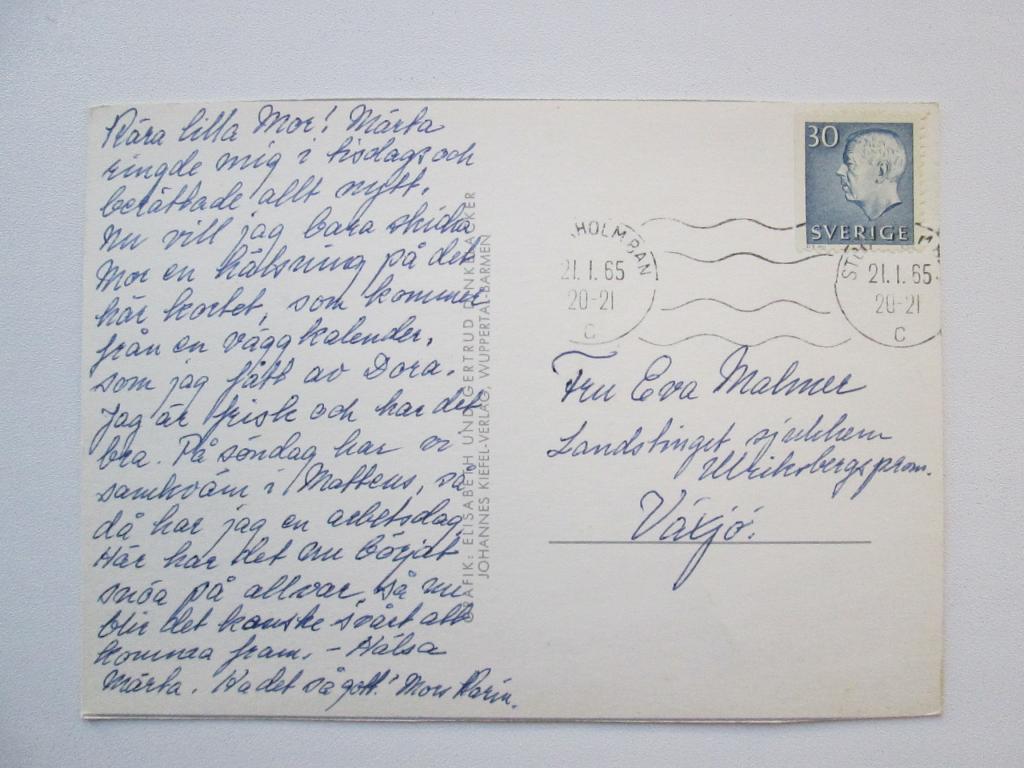 Kära lilla Mor! Märta
ringde mig i tisdags och
berättade allt nytt.
Nu vill jag bara skicka
Mor en hälsning på det
här kortet, som kommer
från en väggkalender,
som jag fått av Dora.
Jag är frisk och har det
bra. På söndag har vi
samkväm i Matteus, så
då har jag en arbetsdag.
Här har det nu börjat
snöa på allvar, så nu
blir det kanske svårt att
komma fram. – Hälsa
Märta. Ha det så gott! Mors Karin.
GRAFIK: ELISABETH UND GERTRUD
JOHANNES KIEFEL-VERLAG, WUPPERTAL-BARMEN
30
SVERIGE
HOLM BAN
21.1.65
20-21
C
STO
21.1.65
20-21
C
Fru Eva Malmer
Landstinget sjukhem
Ulriksbergsprom.
Växjö.